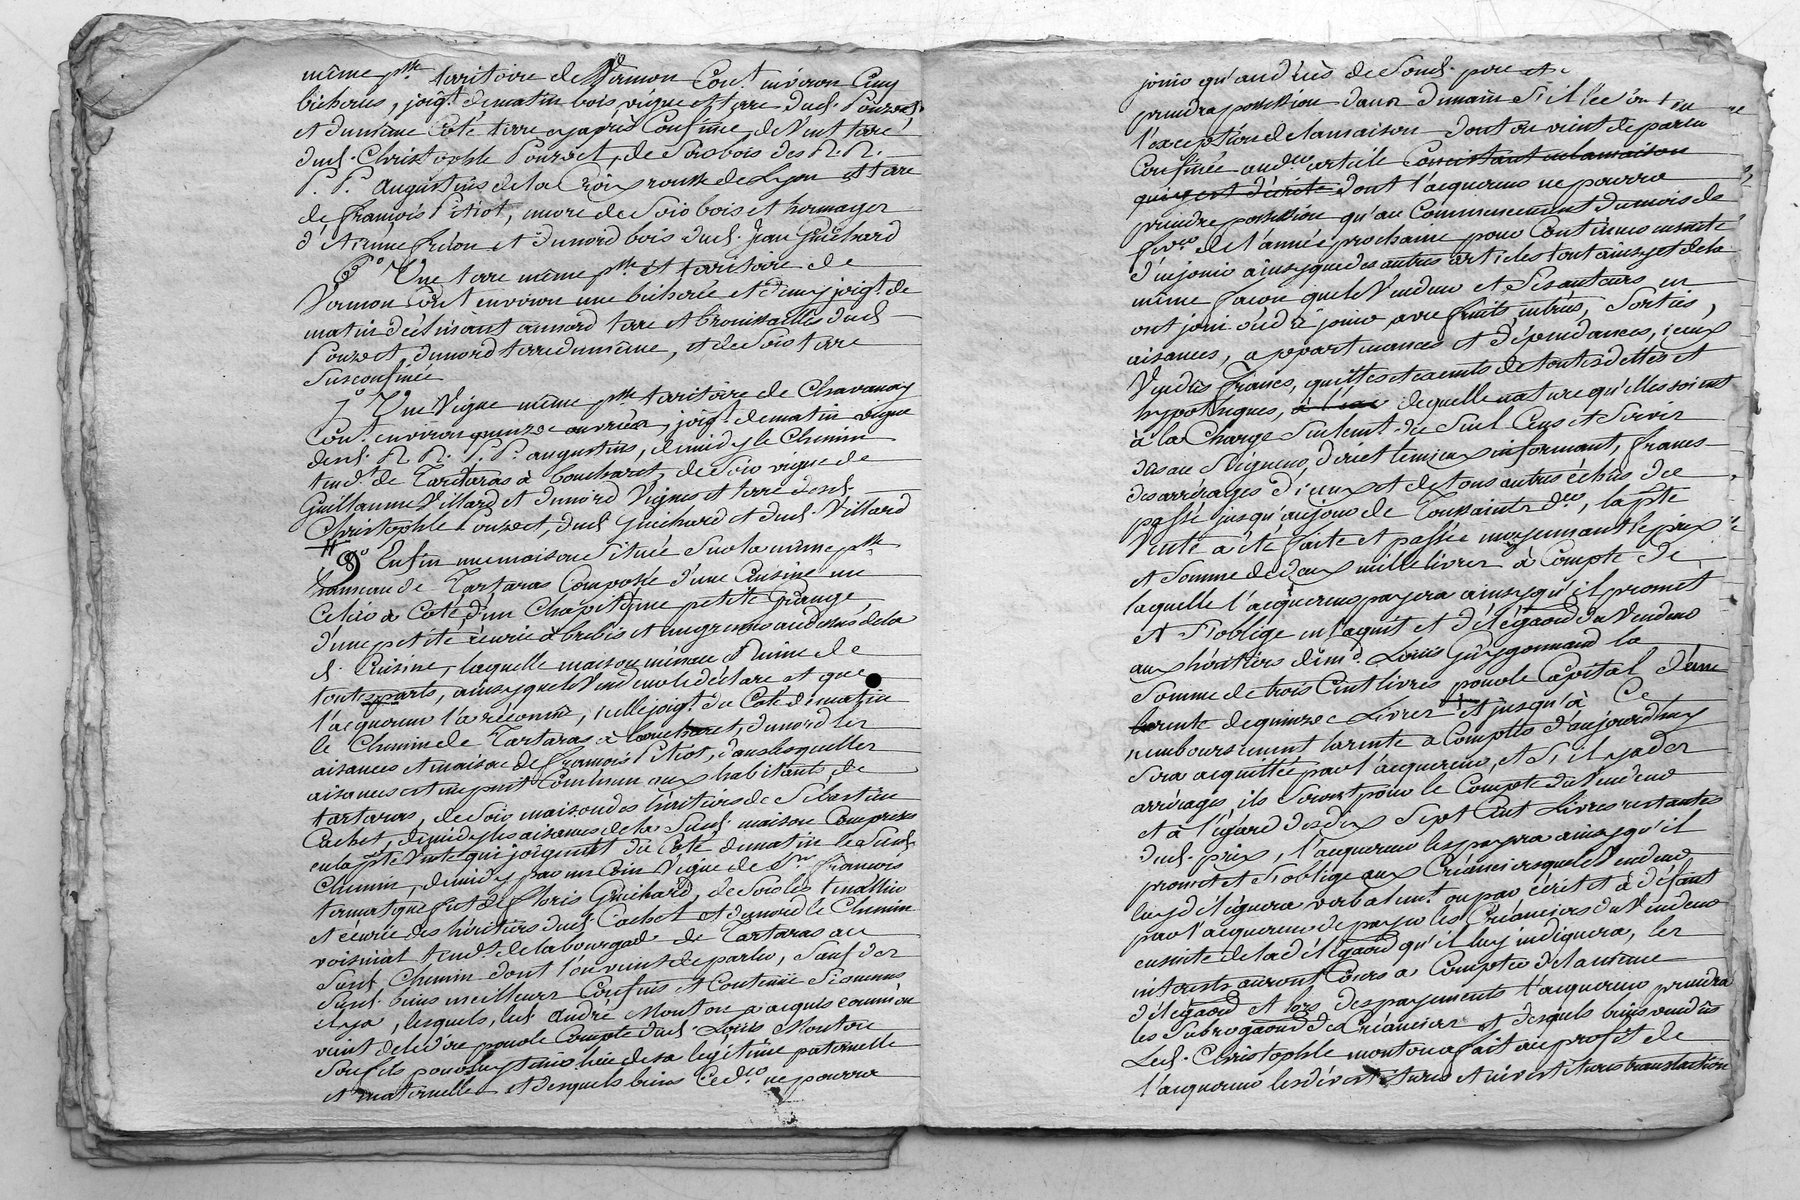 même psse territoire de Vermon Cont. environ Cinq
bicherées, joigt. de matin bois, vigne et terre dud. Pouzet,
et du même Coté terre cyaprès Confinée, de Vent terre
dud. Christophle Pouzet, de Soir bois des R. R.
P. P. augustins de la Croix rousse de Lyon et terre
de françois Pitiot, encore de Soir bois et hermager
d'Etienne fréon et du nord bois dud. Jean Guichard
6° Une terre même psse et territoire de
Vermon Cont. environ une bicherée et demy joigt. de
matin déclinant au nord terre et brouissailles dud.
Pouzet, du nord terre du même, et de Soir terre
Susconfinée
7° Une Vigne même psse territoire de Chavanay
Cont. environ quinze ouvrées, joigt. de matin vigne
desd. R. R. P. P. augustins, de midy le Chemin
tend. de Tartaras à bouchazet, de Soir vigne de
Guillaume Villard et du nord Vignes et terre desd.
Christophle Pouzet, dud. Guichard et dud. Villard
8° Enfin une maison Située Sur la même psse
hameau de Tartaras Composée d'une Cuisine un
Celier à Coté d'un Chapit d'une petite Grange
d'une petite écurie à brebis et un grenier au dessus de la
d. Cuisine, laquelle maisonménace Ruine de
toutes parts, ainsy que le Vendeur le déclare et que
l'acquereur l'a réconnu, icelle joigt. du Coté de matin
le Chemin de Tartaras à bouchazet, du nord les
aisances et maison de françois Pitiot, dans lesquelles
aisances est un puit Commun aux habitants de
tartaras, de Soir maison des héritiers de Sébastien
Cachet, de midy les aisances de la Susd. maison Comprises
en la pste Vente qui joigent du Coté de matin le Susd.
Chemin, de midy par un Coin Vigne de Sr. françois
termat que fut de floris Guichard, de Soir les
et écurie des héritiers dud. Cachet et du nord le Chemin
voisinal tend. de la bourgade de Tartaras au
Susd. Chemin dont l'on vient de parler, Sauf des
Susd. biens meilleurs Confins et Contenüe Si aucuns
il y a, lesquels, led. André Monton a acquis comme on
vient de le dire pour le Compte dud. Louis Monton
Son fils pour luy tenir lieu de sa legitime paternelle
et maternelle et desquels biens Ced. ne pourra
jouir qu'au décès de Sond. pere et
prendra possession dans demain S'il l'ée
l'exception de la maison dont on vient de parler
Confinée au der. article Consistant en la maison
qui dont l'acquereur ne pourra
prendre possession qu'au Commencement du mois de
fvrer. de l'année prochaine pour Continuer ensuite
d'en jouir ainsy que des autres articles tout ainsy et de la
même façon que le Vendeur et Ses auteurs en
ont joui ou dû jouir avec fruits, entrées, Sorties,
aisances, appartenances et dépendances, iceux
Vendus francs, quittes et exempts de toutes dettes et
hypotèques, de quelle nature qu'elles soient
à la Charge Seulemt. du Seul Cens et Servis
dû au Seigneur direct le mieux informant, francs
des arrérages d'iceux et de tous autres échus du
passé jusqu'au jour de Toussaints der., la pste
Vente a été faite et passée moyennant le prix
et Somme de deux mille livres à Compte de
laquelle l'acquereur payera ainsy qu'il promet
et S'oblige en l'acquit et délégaôn du Vendeur
aux héritiers de md. Louis Guygonnand la
Somme de trois Cent livres pour le Capital d'une
rente de quinze Livres et jusqu'à Ce
remboursement la rente a Compter d'aujourdhuy
Sera acquittée par l'acquereur, et S'il y a des
arrérages ils Seront pour le Compte du Vendeur
et à l'égard des dix Sept Cent Livres restantes
dud. prix, l'acquereur les payera ainsy qu'il
promet et S'oblige aux Créanciers que le Vendeur
luy déléguera verbalemt. ou par écrit et à défaut
par l'acquereur de payer les Créanciers du Vendeur
ensuite de la délégaôn qu'il luy indiquera, les
interets auront Cours a Compter de la même
délégaôn et lors des payements l'acquereur prendra
les Subrogaôns des Créanciers et desquels biens vendus
Led. Christophle monton a fait au profit de
l'acquereur les dévestitures et investitures translation